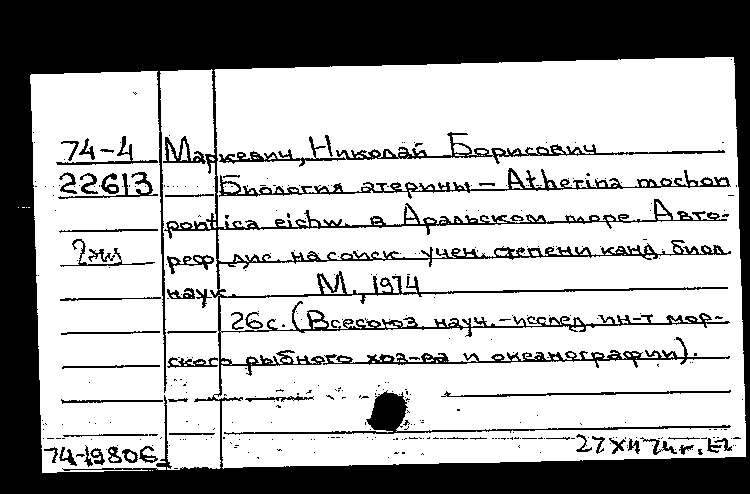 74-4 Маркевич, Николай Борисович
22613 Биология атерины – Atherina mochon
pontica eichw. в Аральском море. Авто-
2экз реф. дис. на соиск. учен. степени канд. биол.
наук. М., 1974
26с. (Всесоюз. науч.-исслед. ин-т мор-
ского рыбного хоз-ва и океанографии).
74-19806 27 XII 74г.